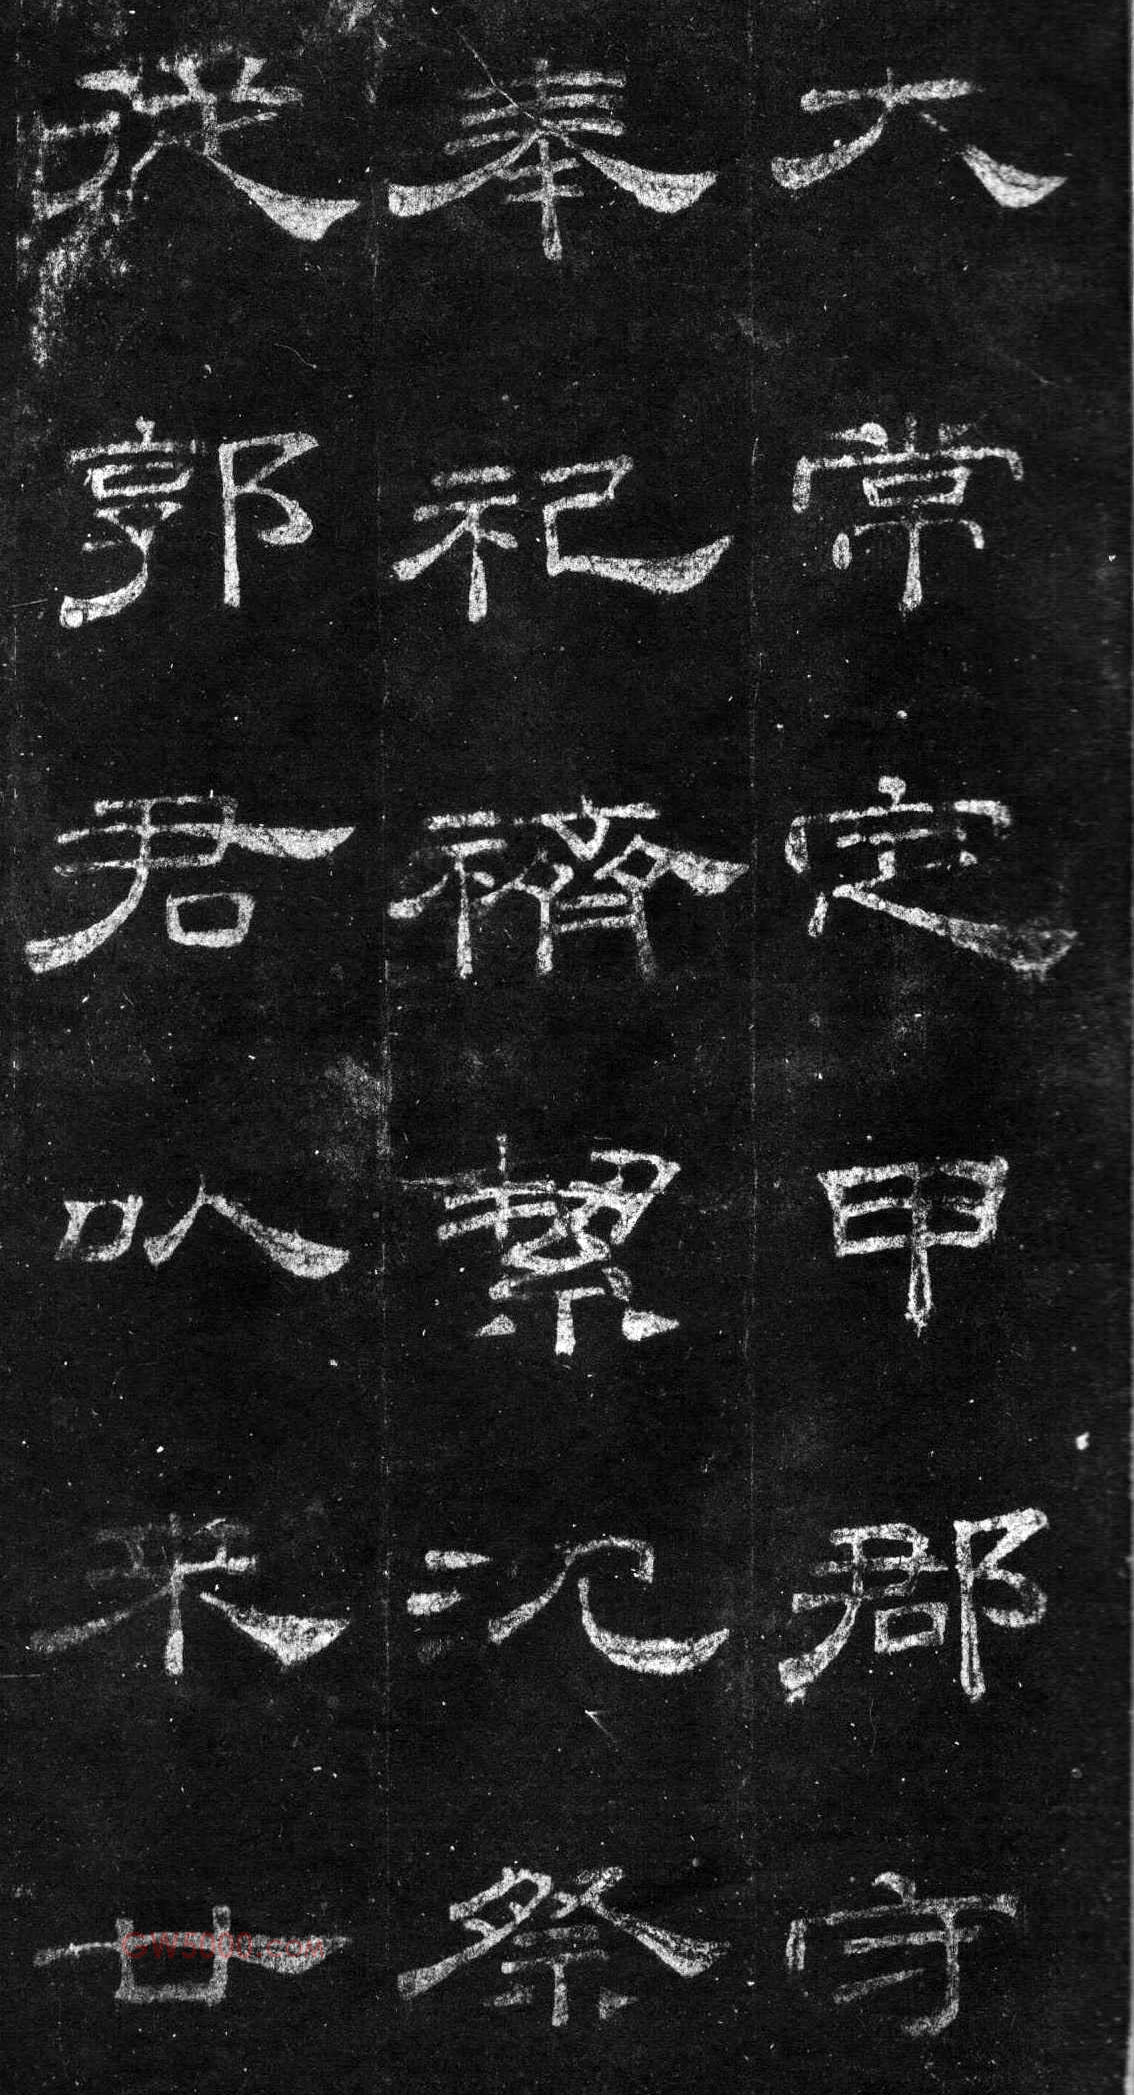 大常定甲郡守
奉祀齋絜沈祭
從郭君以来廿
GW5000.COM